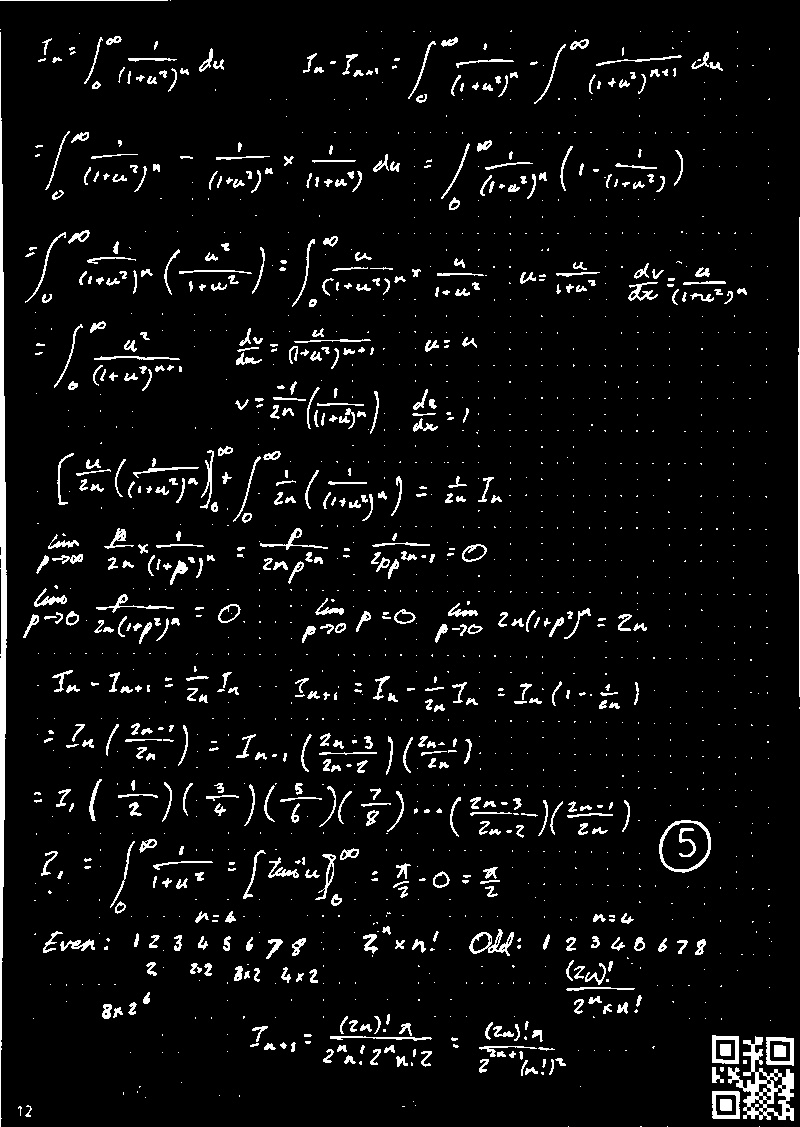 I_n = ∫_0^∞ 1/(1+u²)^n du    I_n - I_{n+1} = ∫_0^∞ 1/(1+u²)^n - ∫_0^∞ 1/(1+u²)^{n+1} du
= ∫_0^∞ 1/(1+u²)^n - 1/(1+u²)^n × 1/(1+u²) du = ∫_0^∞ 1/(1+u²)^n (1 - 1/(1+u²))
= ∫_0^∞ 1/(1+u²)^n (u²/1+u²) = ∫_0^∞ u/(1+u²)^n × u/1+u²    u = u/1+u²    dv/dx = u/(1+u²)^n
= ∫_0^∞ u²/(1+u²)^{n+1}    dv/du = u/(1+u²)^{n+1}    u = u
v = -1/2n (1/(1+u²)^n)    du/dx = 1
[u/2n (1/(1+u²)^n)]_0^∞ + ∫_0^∞ 1/2n (1/(1+u²)^n) = 1/2n I_n
lim p→∞ p/2n × 1/(1+p²)^n = p/2np^{2n} = 1/2pp^{2n-1} = 0
lim p→0 p/2n(1+p²)^n = 0    lim p→0 p = 0    lim p→0 2n(1+p²)^n = 2n
I_n - I_{n+1} = 1/2n I_n    I_{n+1} = I_n - 1/2n I_n = I_n (1 - 1/2n)
= I_n (2n-1/2n) = I_{n-1} (2n-3/2n-2)(2n-1/2n)
= I_1 (1/2)(3/4)(5/6)(7/8) ... (2n-3/2n-2)(2n-1/2n)
5
I_1 = ∫_0^∞ 1/1+u² = [tan⁻¹u]_0^∞ = π/2 - 0 = π/2
n=4    n=4
Even: 1 2 3 4 5 6 7 8    2^n × n!    Odd: 1 2 3 4 5 6 7 8
2    2×2    3×2    4×2    (2n)!/2^n × n!
8×2^6
I_{n+1} = (2n)! π/2^n n! 2^n n! 2 = (2n)! π/2^{2n+1} (n!)²
12